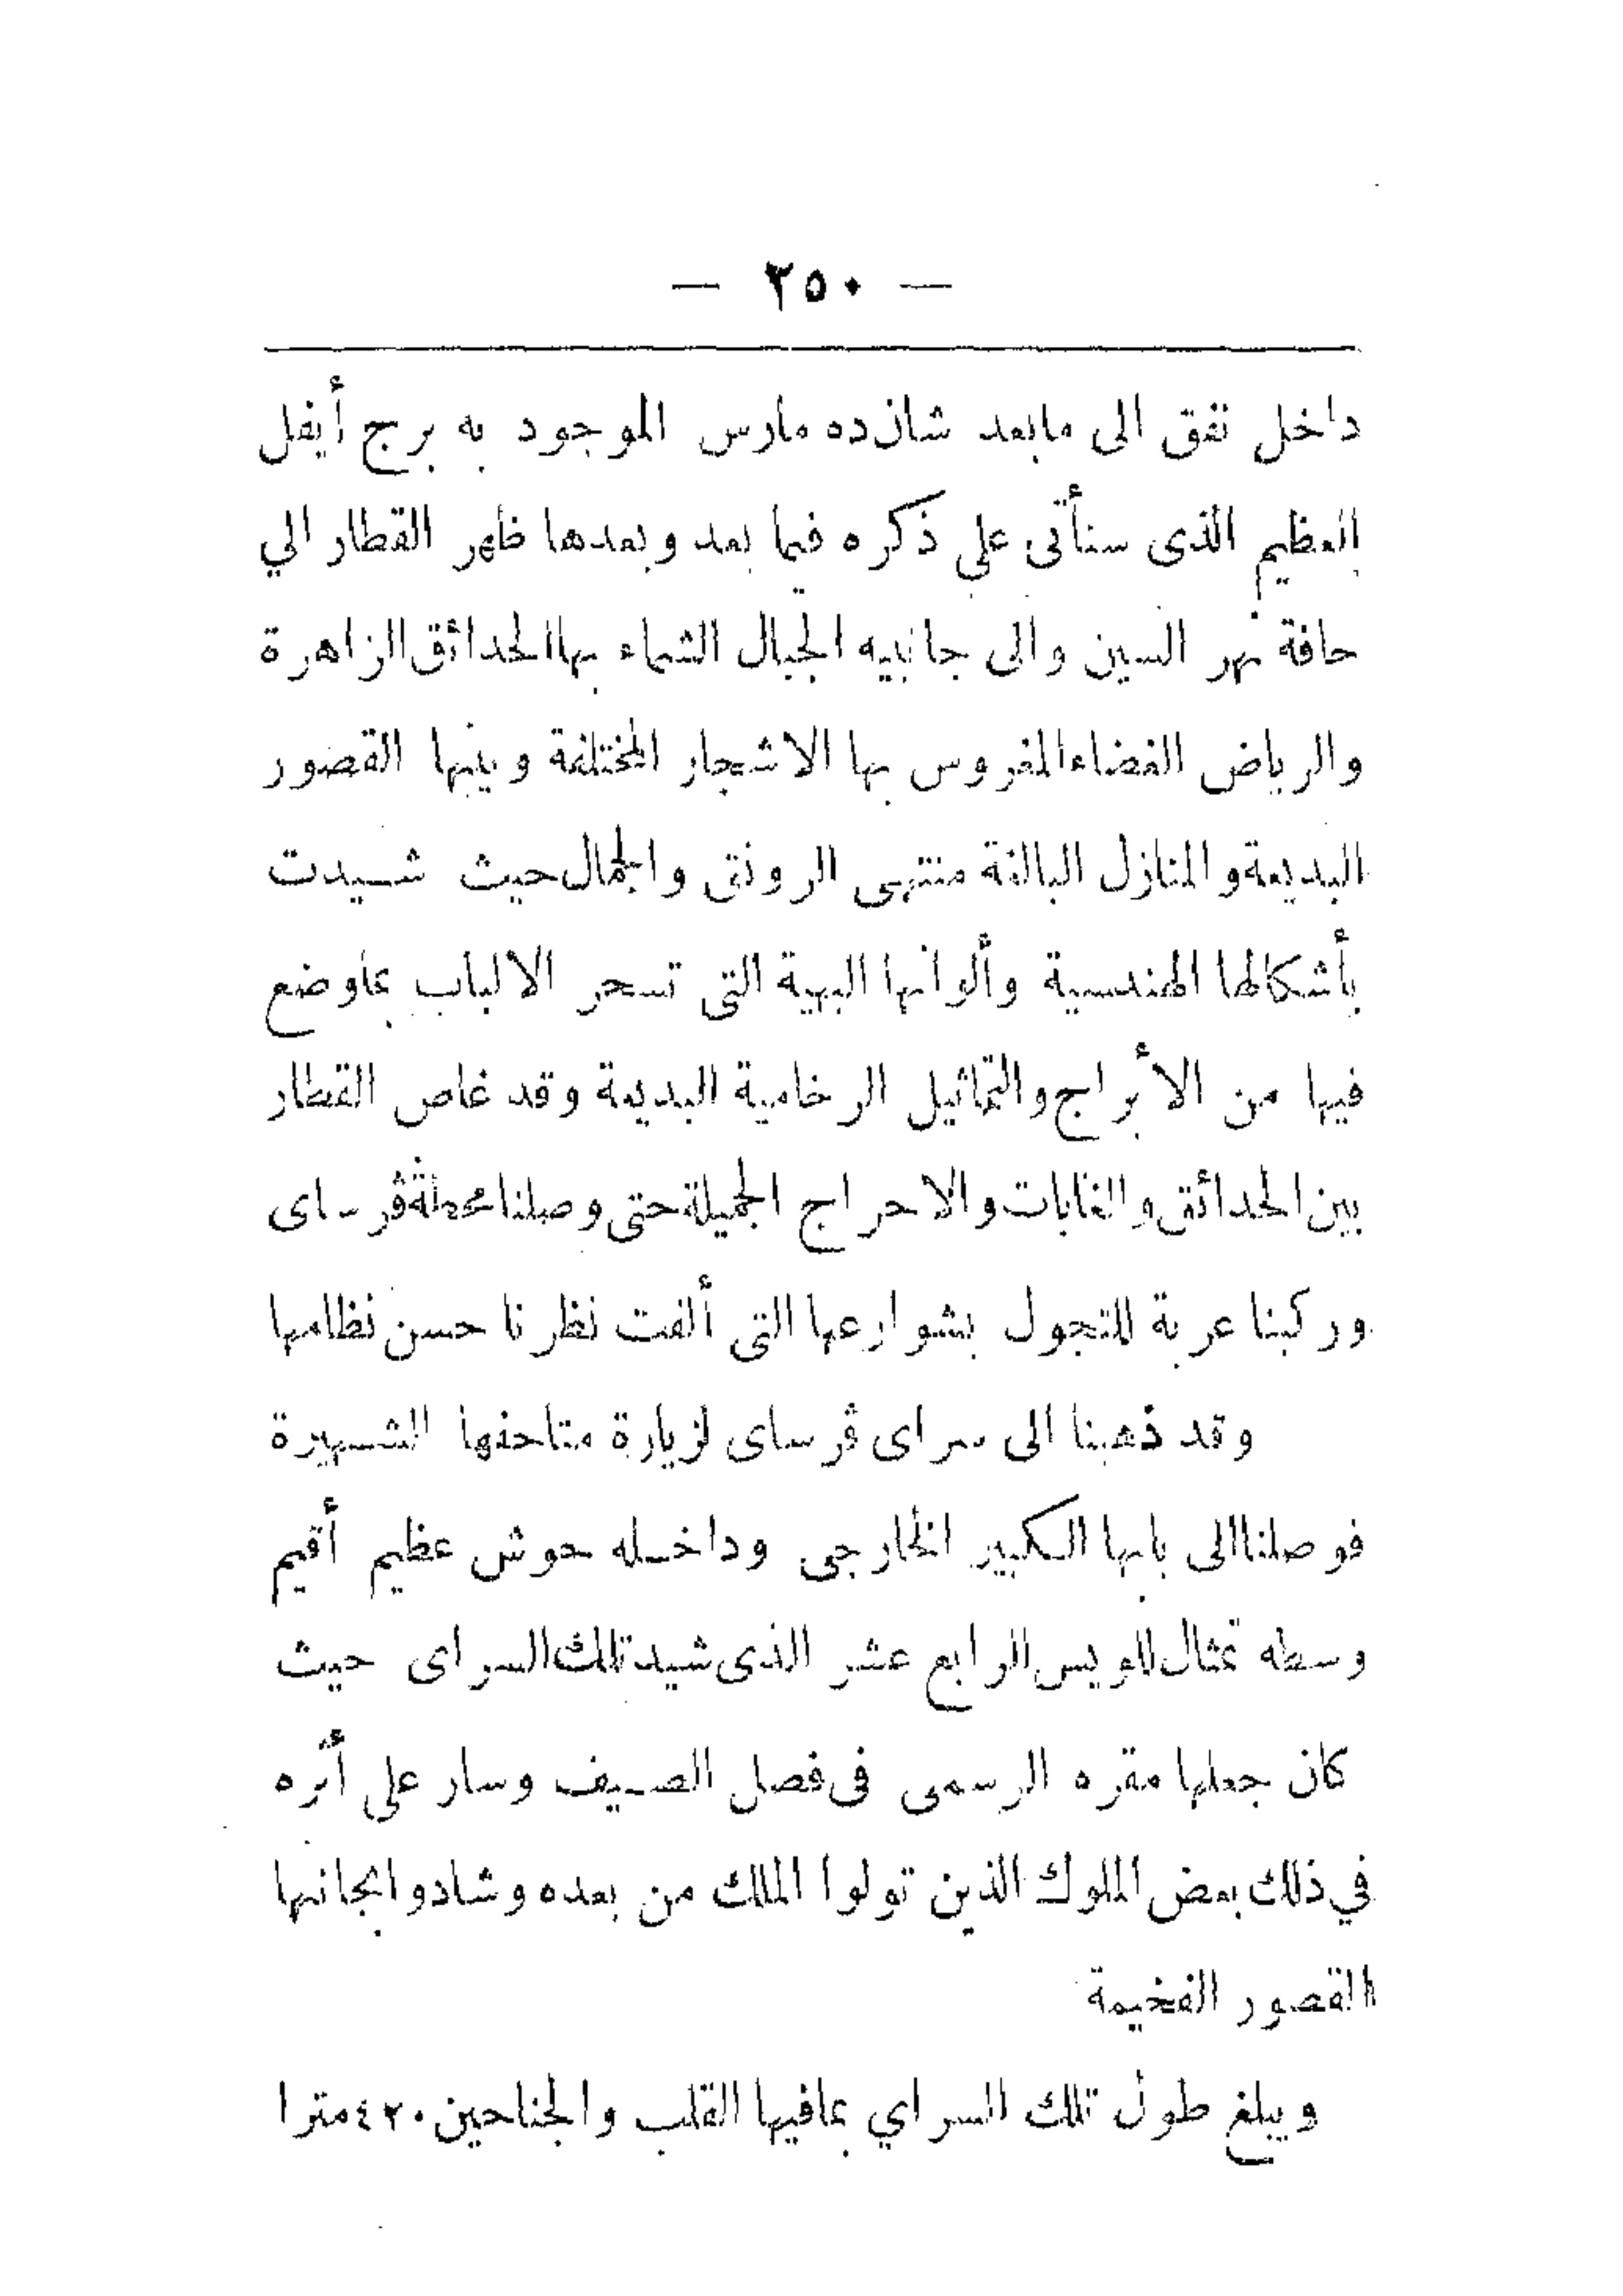 — ٢٥٠ —
داخل نفق الى مابعد شان ده مارس الموجود به برج أيفل
العظيم الذى سنأتى على ذكره فيما بعد وبعدها ظهر القطار الي
حافة نهر السين والى جانبيه الجبال الشماء بها الحدائق الزاهرة
والرياض الغضاء المغروس بها الاشجار المختلفة وبينها القصور
البديعة والمنازل البالغة منتهى الرونق والجمال حيث شيدت
بأشكالها الهندسية وألوانها البهية التى تسحر الالباب بما وضع
فيها من الأبراج والتماثيل الرخامية البديعة وقد غاص القطار
بين الحدائق والغابات والاحراج الجميلة حتى وصلنا محطة ڤرساى
وركبنا عربة للتجول بشوارعها التى ألفت نظرنا حسن نظامها
وقد ذهبنا الى سراى ڤرساى لزيارة متاحفها الشهيرة
فوصلنا الى بابها الكبير الخارجى وداخله حوش عظيم أقيم
وسطه تمثال للويس الرابع عشر الذى شيد تلك السراى حيث
كان جعلها مقره الرسمى فى فصل الصيف وسار على أثره
في ذلك بعض الملوك الذين تولوا الملك من بعده وشادوا بجانبها
القصور الفخيمة
ويبلغ طول تلك السراي بمافيها القلب والجناحين ٤٢٠ مترا